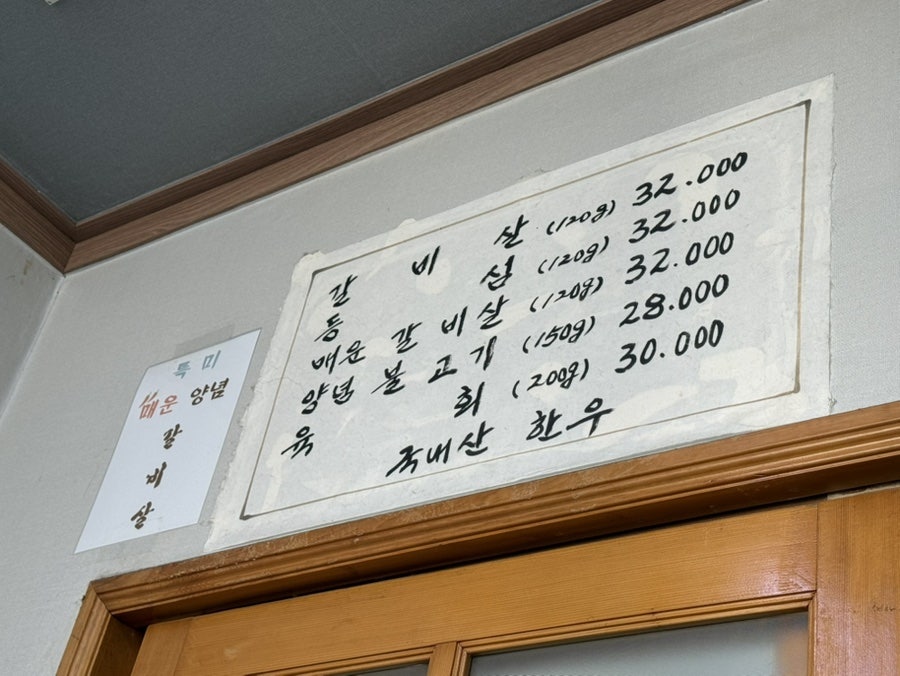 갈비살 (120g) 32.000
등심 (120g) 32.000
매운갈비살 (120g) 32.000
양념불고기 (150g) 28.000
육회 (200g) 30.000
국내산 한우
특미
매운 양념
갈
비
살